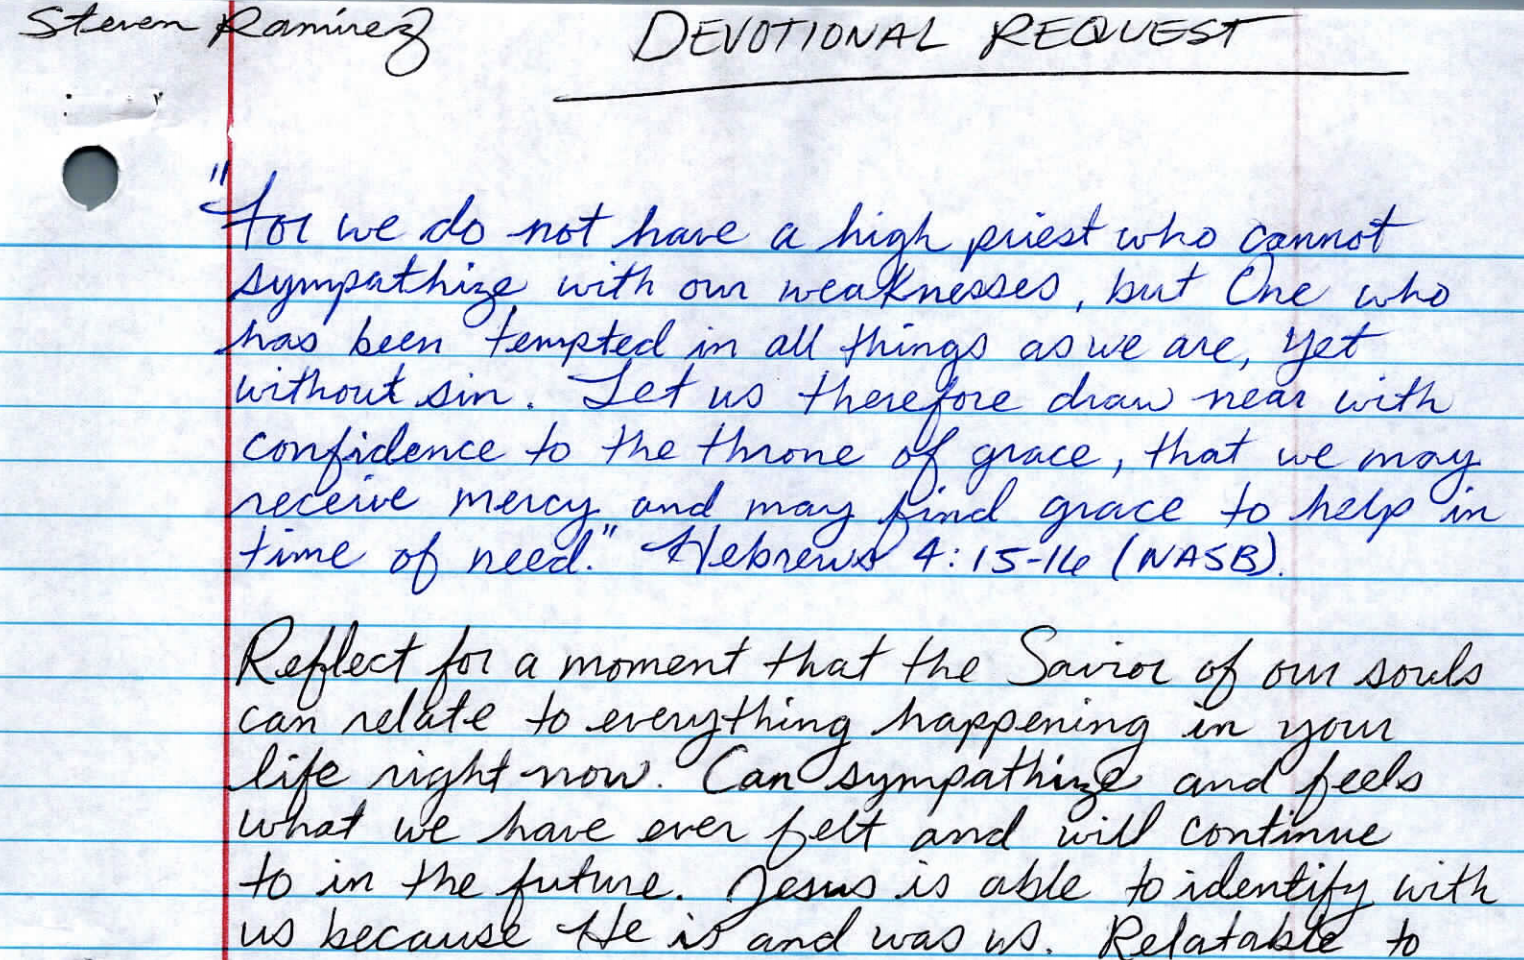 Steven Ramirez DEVOTIONAL REQUEST
"For we do not have a high priest who cannot
sympathize with our weaknesses, but One who
has been tempted in all things as we are, yet
without sin. Let us therefore draw near with
confidence to the throne of grace, that we may
receive mercy and may find grace to help in
time of need." Hebrews 4:15-16 (NASB).
Reflect for a moment that the Savior of our souls
can relate to everything happening in your
life right now. Can sympathize and feels
what we have ever felt and will continue
to in the future. Jesus is able to identify with
us because He is and was us. Relatable to